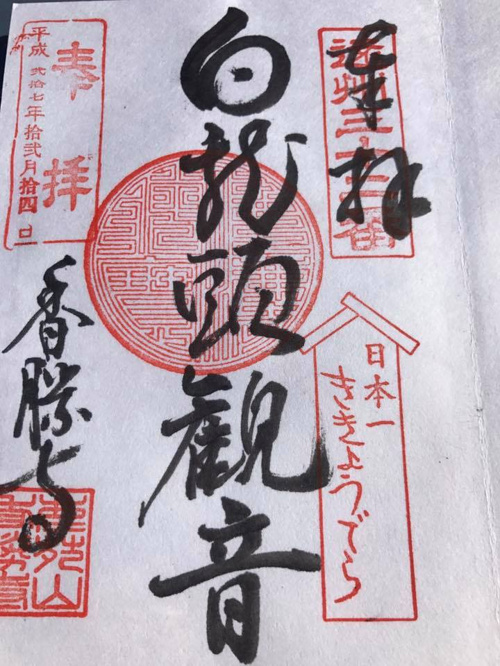 奉拝
遠州三十三番
日本一
ききょうでら
白龍頭觀音
奉拝
平成弐拾七年拾弐月拾四日
香勝寺